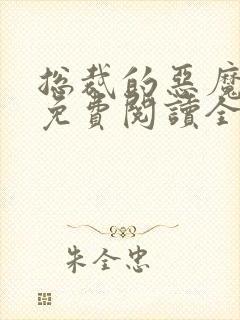 总裁的惡魔
免費閱讀全
朱全忠